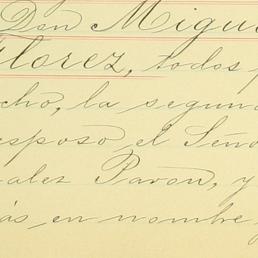 Don Migu
Florez, todos p
cho, la segun
esposo, el Seño
alez Pavon, y
ás, en nombre y